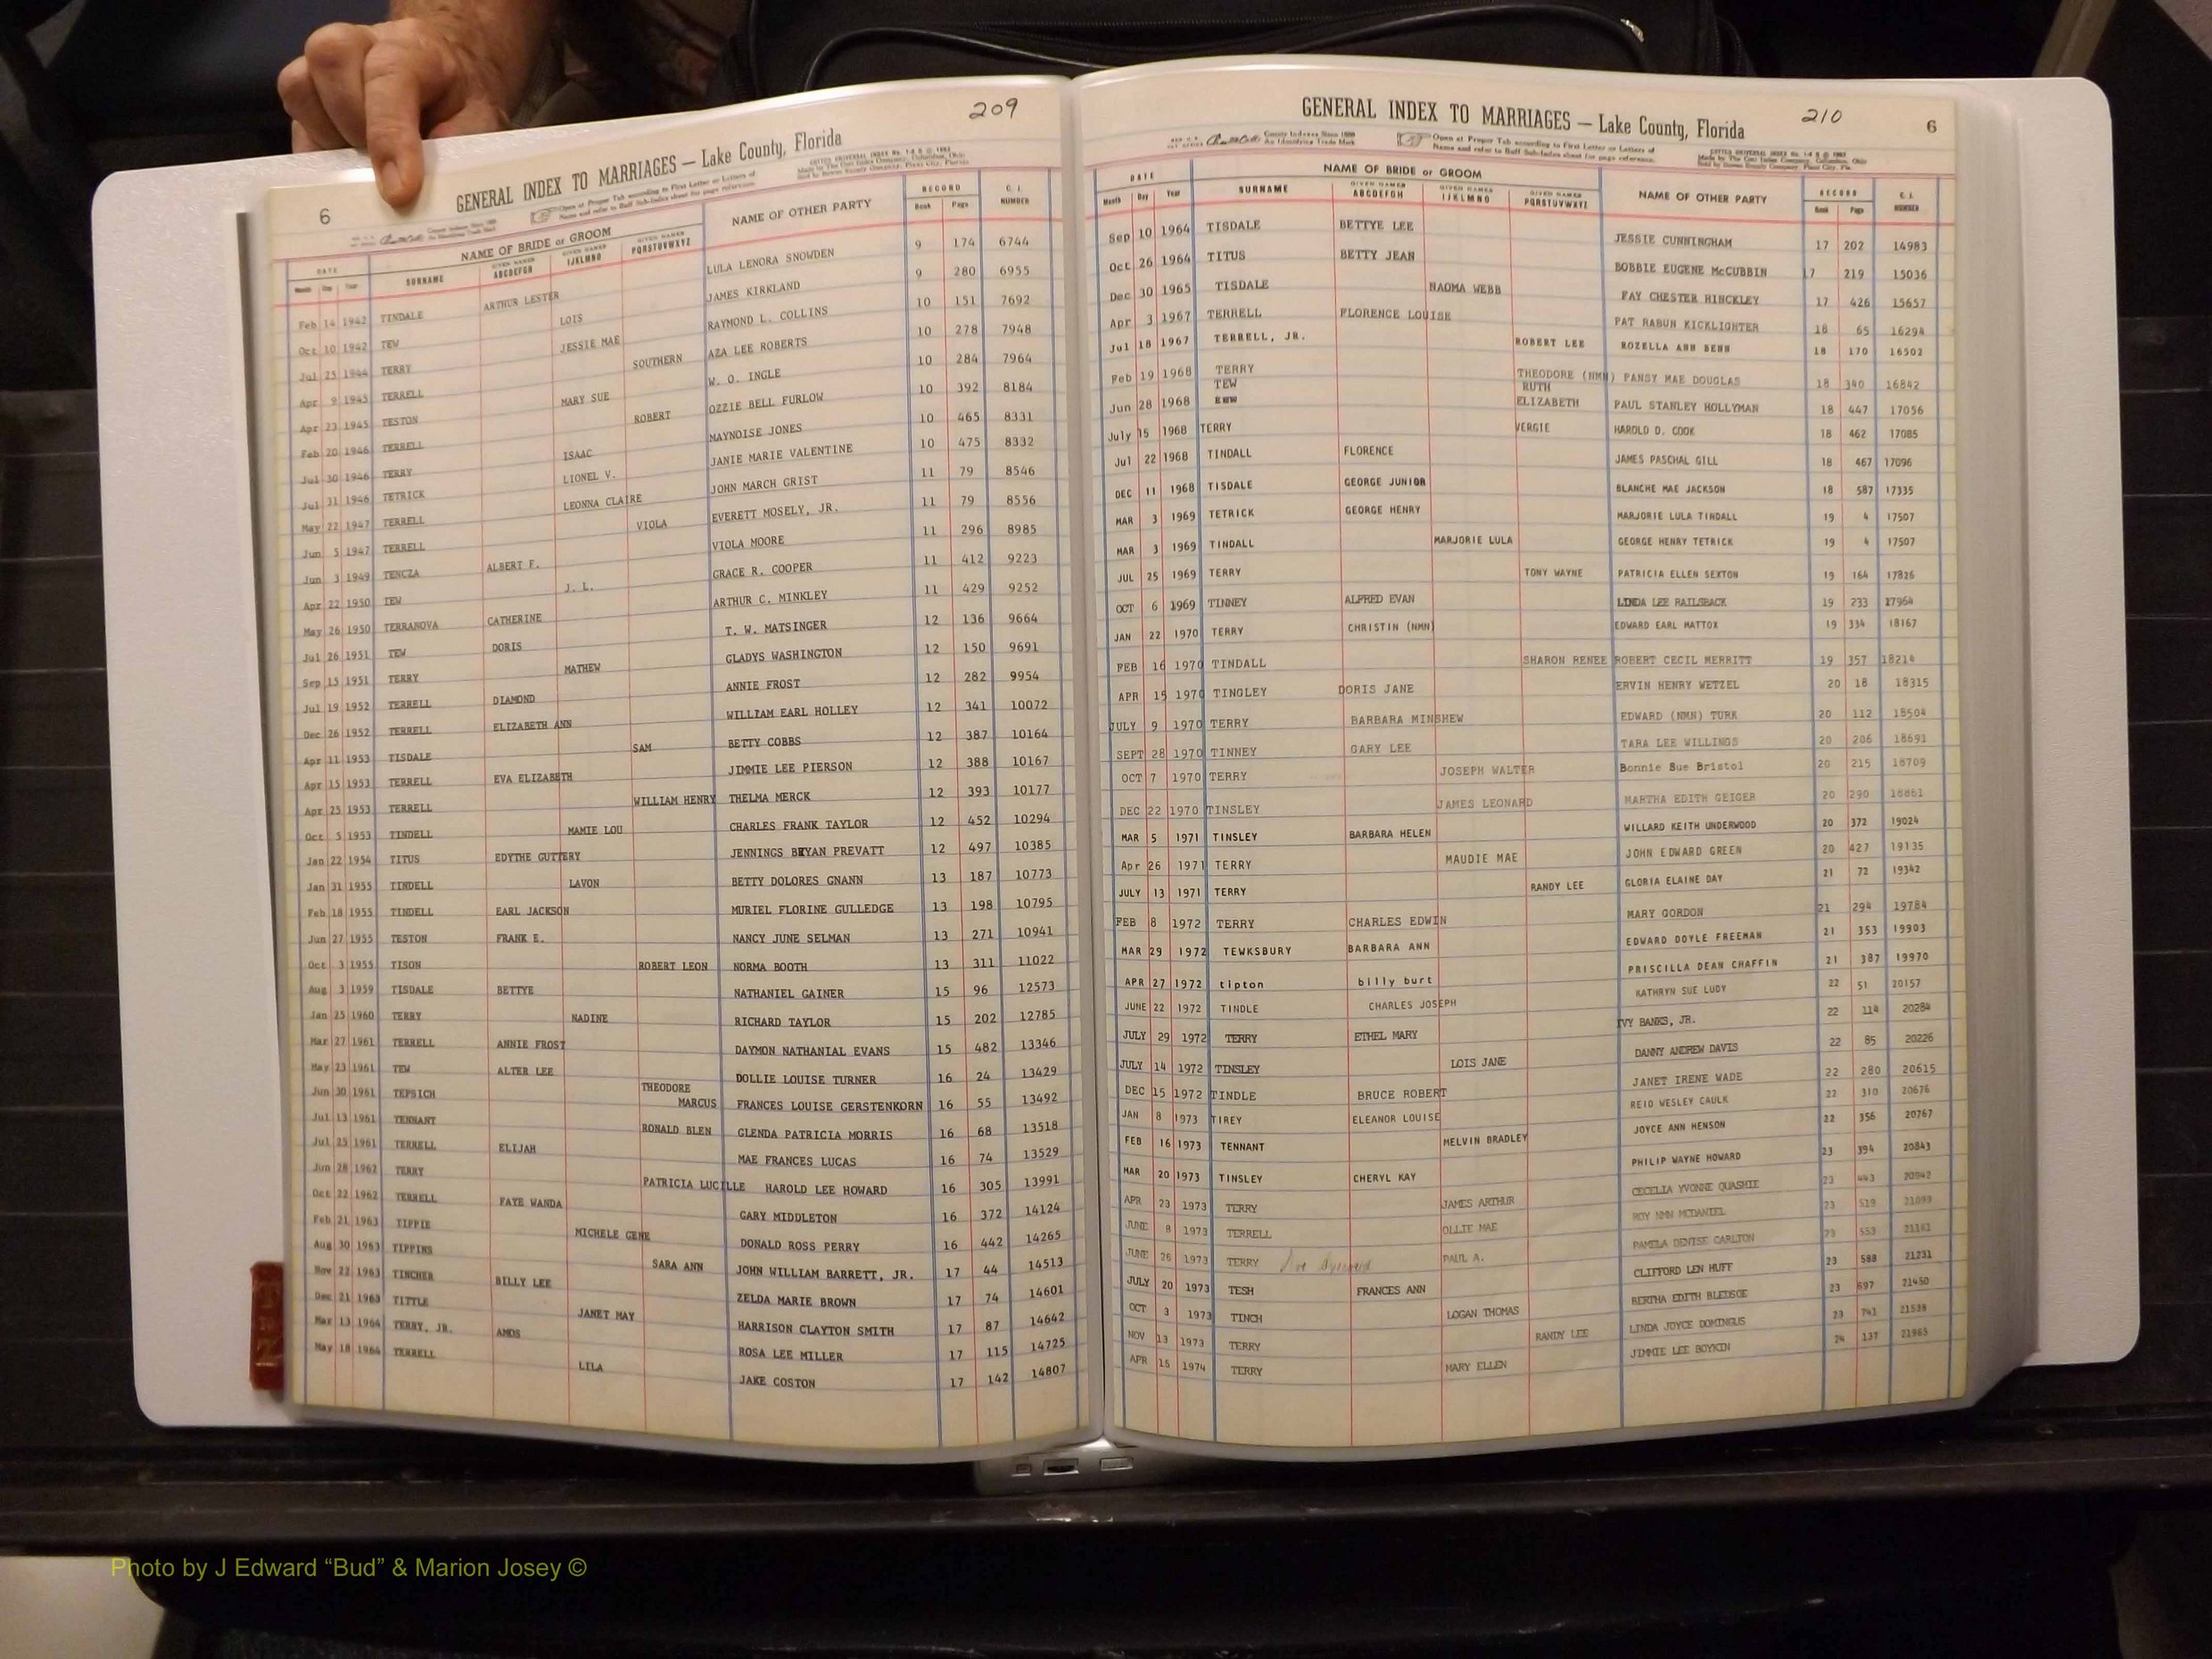 209
GENERAL INDEX TO MARRIAGES — Lake County, Florida
6
NAME OF BRIDE or GROOM NAME OF OTHER PARTY RECORD
DATE SURNAME ABCDEFGH IJKLMNO PQRSTUVWXYZ Book Page NUMBER
Feb 14 1942 TINDALE ARTHUR LESTER LULA LENORA SNOWDEN 9 174 6744
Oct 10 1942 TEW LOIS JAMES KIRKLAND 9 280 6955
Jul 25 1944 TERRY JESSIE MAE RAYMOND L. COLLINS 10 151 7692
Apr 9 1945 TERRELL SOUTHERN AZA LEE ROBERTS 10 278 7948
Apr 23 1945 TESTON MARY SUE W. O. INGLE 10 284 7964
Feb 20 1946 TERRELL ROBERT OZZIE BELL FURLOW 10 392 8184
Jul 30 1946 TERRY ISAAC MAYNOISE JONES 10 465 8331
Jul 31 1946 TETRICK LIONEL V. JANIE MARIE VALENTINE 10 475 8332
May 22 1947 TERRELL LEONNA CLAIRE JOHN MARCH GRIST 11 79 8546
Jun 5 1947 TERRELL VIOLA EVERETT MOSELY, JR. 11 79 8556
Jun 3 1949 TENCZA ALBERT F. VIOLA MOORE 11 296 8985
Apr 22 1950 TEW J. L. GRACE R. COOPER 11 412 9223
May 26 1950 TERRANOVA CATHERINE ARTHUR C. MINKLEY 11 429 9252
Jul 26 1951 TEW DORIS T. W. MATSINGER 12 136 9664
Sep 15 1951 TERRY MATHEW GLADYS WASHINGTON 12 150 9691
Jul 19 1952 TERRELL DIAMOND ANNIE FROST 12 282 9954
Dec 26 1952 TERRELL ELIZABETH ANN WILLIAM EARL HOLLEY 12 341 10072
Apr 11 1953 TISDALE SAM BETTY COBBS 12 387 10164
Apr 15 1953 TERRELL EVA ELIZABETH JIMMIE LEE PIERSON 12 388 10167
Apr 25 1953 TERRELL WILLIAM HENRY THELMA MERCK 12 393 10177
Oct 5 1953 TINDELL MAMIE LOU CHARLES FRANK TAYLOR 12 452 10294
Jan 22 1954 TITUS EDYTHE GUTTERY JENNINGS BRYAN PREVATT 12 497 10385
Jan 31 1955 TINDELL LAVON BETTY DOLORES GNANN 13 187 10773
Feb 18 1955 TINDELL EARL JACKSON MURIEL FLORINE GULLEDGE 13 198 10795
Jun 27 1955 TESTON FRANK E. NANCY JUNE SELMAN 13 271 10941
Oct 3 1955 TISON ROBERT LEON NORMA BOOTH 13 311 11022
Aug 3 1959 TISDALE BETTYE NATHANIEL GAINER 15 96 12573
Jan 25 1960 TERRY NADINE RICHARD TAYLOR 15 202 12785
Mar 27 1961 TERRELL ANNIE FROST DAYMON NATHANIAL EVANS 15 482 13346
May 23 1961 TEW ALTER LEE DOLLIE LOUISE TURNER 16 24 13429
Jun 30 1961 TEPSICH THEODORE MARCUS FRANCES LOUISE GERSTENKORN 16 55 13492
Jul 13 1961 TENNANT RONALD BLEN GLENDA PATRICIA MORRIS 16 68 13518
Jul 25 1961 TERRELL ELIJAH MAE FRANCES LUCAS 16 74 13529
Jun 28 1962 TERRY PATRICIA LUCILLE HAROLD LEE HOWARD 16 305 13991
Oct 22 1962 TERRELL FAYE WANDA GARY MIDDLETON 16 372 14124
Feb 21 1963 TIPPIE MICHELE GENE DONALD ROSS PERRY 16 442 14265
Aug 30 1963 TIPPINS SARA ANN JOHN WILLIAM BARRETT, JR. 17 44 14513
Nov 22 1963 TINCHER BILLY LEE ZELDA MARIE BROWN 17 74 14601
Dec 21 1963 TITTLE JANET MAY HARRISON CLAYTON SMITH 17 87 14642
Mar 13 1964 TERRY, JR. AMOS ROSA LEE MILLER 17 115 14725
May 18 1964 TERRELL LILA JAKE COSTON 17 142 14807
GENERAL INDEX TO MARRIAGES — Lake County, Florida
210
6
DATE NAME OF BRIDE or GROOM NAME OF OTHER PARTY RECORD
Month Day Year SURNAME ABCDEFGH IJKLMNO PQRSTUVWXYZ Book Page NUMBER
Sep 10 1964 TISDALE BETTYE LEE JESSIE CUNNINGHAM 17 202 14983
Oct 26 1964 TITUS BETTY JEAN BOBBIE EUGENE McCUBBIN 17 219 15036
Dec 30 1965 TISDALE NAOMA WEBB FAY CHESTER HINCKLEY 17 426 15657
Apr 3 1967 TERRELL FLORENCE LOUISE PAT RABUN KICKLIGHTER 18 65 16294
Jul 18 1967 TERRELL, JR. ROBERT LEE ROZELLA ANN BENN 18 170 16502
Feb 19 1968 TERRY THEODORE (NMN) PANSY MAE DOUGLAS 18 340 16842
Jun 28 1968 TEW RUTH ELIZABETH PAUL STANLEY HOLLYMAN 18 447 17056
July 15 1968 TERRY VERGIE HAROLD D. COOK 18 462 17085
Jul 22 1968 TINDALL FLORENCE JAMES PASCHAL GILL 18 467 17096
DEC 11 1968 TISDALE GEORGE JUNIOR BLANCHE MAE JACKSON 18 587 17335
MAR 3 1969 TETRICK GEORGE HENRY MARJORIE LULA TINDALL 19 4 17507
MAR 3 1969 TINDALL MARJORIE LULA GEORGE HENRY TETRICK 19 4 17507
JUL 25 1969 TERRY TONY WAYNE PATRICIA ELLEN SEXTON 19 164 17826
OCT 6 1969 TINNEY ALFRED EVAN LINDA LEE RAILSBACK 19 233 17964
JAN 22 1970 TERRY CHRISTIN (NMN) EDWARD EARL MATTOX 19 334 18167
FEB 16 1970 TINDALL SHARON RENEE ROBERT CECIL MERRITT 19 357 18214
APR 15 1970 TINGLEY DORIS JANE ERVIN HENRY WETZEL 20 18 18315
JULY 9 1970 TERRY BARBARA MINSHEW EDWARD (NMN) TURK 20 112 18504
SEPT 28 1970 TINNEY GARY LEE TARA LEE WILLINGS 20 206 18691
OCT 7 1970 TERRY JOSEPH WALTER Bonnie Sue Bristol 20 215 18709
DEC 22 1970 TINSLEY JAMES LEONARD MARTHA EDITH GEIGER 20 290 18861
MAR 5 1971 TINSLEY BARBARA HELEN WILLARD KEITH UNDERWOOD 20 372 19024
Apr 26 1971 TERRY MAUDIE MAE JOHN EDWARD GREEN 20 427 19135
JULY 13 1971 TERRY RANDY LEE GLORIA ELAINE DAY 21 72 19342
FEB 8 1972 TERRY CHARLES EDWIN MARY GORDON 21 294 19784
MAR 29 1972 TEWKSBURY BARBARA ANN EDWARD DOYLE FREEMAN 21 353 19903
APR 27 1972 tipton billy burt PRISCILLA DEAN CHAFFIN 21 387 19970
JUNE 22 1972 TINDLE CHARLES JOSEPH KATHRYN SUE LUDY 22 51 20157
JULY 29 1972 TERRY ETHEL MARY IVY BANKS, JR. 22 114 20284
JULY 14 1972 TINSLEY LOIS JANE DANNY ANDREW DAVIS 22 85 20226
DEC 15 1972 TINDLE BRUCE ROBERT JANET IRENE WADE 22 280 20615
JAN 8 1973 TIREY ELEANOR LOUISE REID WESLEY CAULK 22 310 20676
FEB 16 1973 TENNANT MELVIN BRADLEY JOYCE ANN HENSON 22 356 20767
MAR 20 1973 TINSLEY CHERYL KAY PHILIP WAYNE HOWARD 23 394 20843
APR 23 1973 TERRY JAMES ARTHUR CECELIA YVONNE QUASHIE 23 443 20942
JUNE 8 1973 TERRELL OLLIE MAE ROY NMN MCDANIEL 23 519
JUNE 26 1973 TERRY PAUL A. PAMELA DENISE CARLTON 23 553
JULY 20 1973 TESH FRANCES ANN CLIFFORD LEN HUFF 23 588 21231
OCT 3 1973 TINCH LOGAN THOMAS BERTHA EDITH BLEDSOE 23 697 21450
NOV 13 1973 TERRY RANDY LEE LINDA JOYCE DOMINGUS 23 741 21538
APR 15 1974 TERRY MARY ELLEN JIMMIE LEE BOYKIN 24 137 21965
Photo by J Edward “Bud” & Marion Josey ©